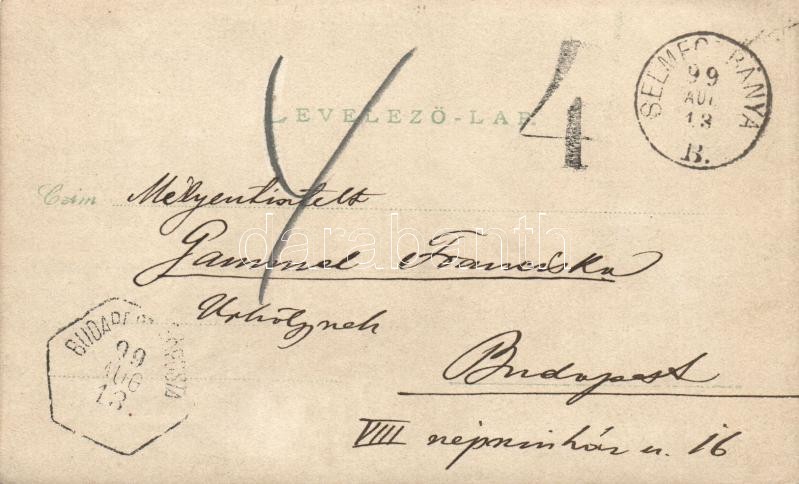 SELMECZBÁNYA
99
AUG
13
B.
4
4
LEVELEZŐ-LAP
Czím
Mélyentisztelt
Gammel Franciska
Urhölgynek
Budapest
VIII népszinház u. 16
BUDAPEST
99
AUG
13
darabanth